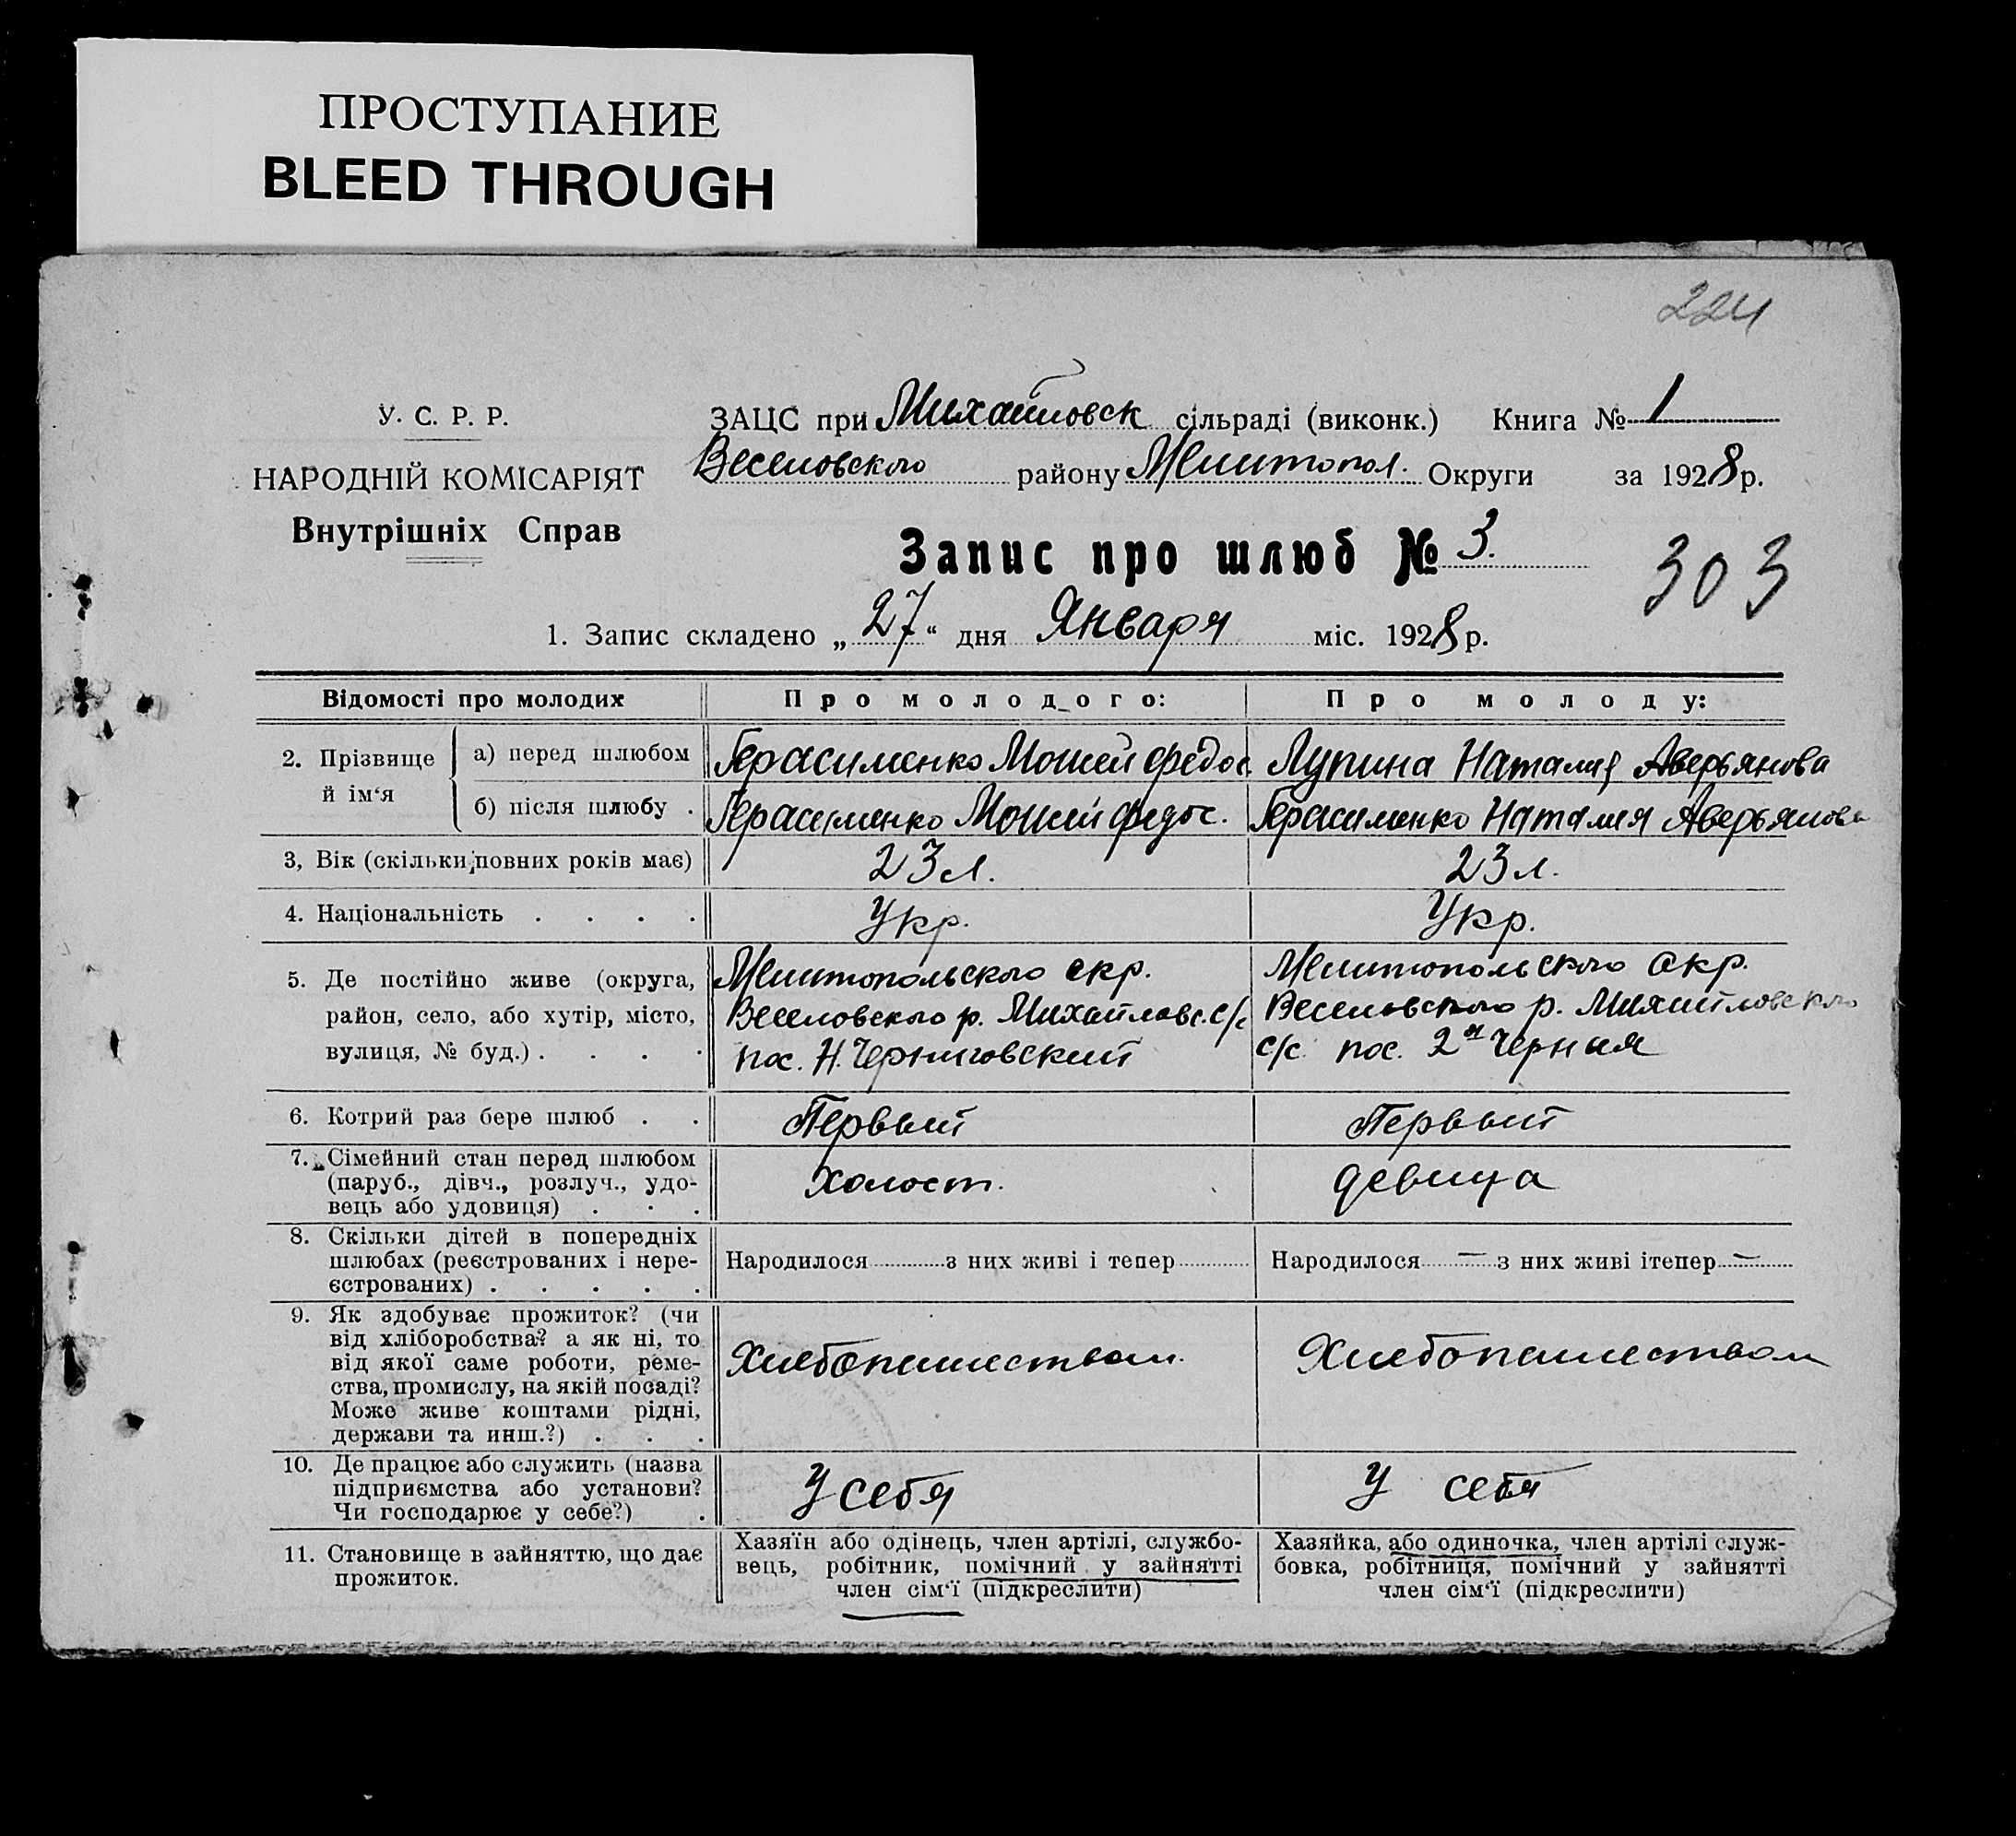 ПРОСТУПАНИЕ
BLEED THROUGH
224
У. С. Р. Р.
НАРОДНІЙ КОМІСАРІЯТ
Внутрішніх Справ
ЗАЦС при Михайловск сільраді (виконк.) Книга № 1
Веселовского району Мелитопол. Округи за 1928 р.
Запис про шлюб № 3.
303
1. Запис складено „27“ дня Января міс. 1928 р.
Відомості про молодих
Про молодого:
Про молоду:
2. Прізвище й ім‘я
а) перед шлюбом
Герасименко Мойсей Федос
Лупина Наталия Аверьянова
б) після шлюбу .
Герасименко Мойсей Федос.
Герасименко Наталия Аверьянова
3, Вік (скільки повних років має)
23 л.
23 л.
4. Національність . . . .
Укр.
Укр.
5. Де постійно живе (округа,
район, село, або хутір, місто,
вулиця, № буд.) . . . .
Мелитопольского окр.
Веселовского р. Михайловс. с/с
пос. Н. Черниговский
Мелитопольского окр.
Веселовского р. Михайловского
с/с. пос. 2я Черная
6. Котрий раз бере шлюб . .
Первый
Первый
7. Сімейний стан перед шлюбом
(паруб., дівч., розлуч., удо-
вець або удовиця) . . .
Холост.
девица
8. Скільки дітей в попередніх
шлюбах (реєстрованих і нере-
єстрованих) . . . . .
Народилося з них живі і тепер
Народилося — з них живі ітепер —
9. Як здобуває прожиток? (чи
від хліборобства? а як ні, то
від якої саме роботи, реме-
ства, промислу, на якій посаді?
Може живе коштами рідні,
держави та инш.?) . . .
Хлебопашеством.
Хлебопашеством
10. Де працює або служить (назва
підприємства або установи?
Чи господарює у себе?) .
У себя
У себя
11. Становище в зайняттю, що дає
прожиток.
Хазяїн або одінець, член артілі, службо-
вець, робітник, помічний у зайнятті
член сім‘ї (підкреслити)
Хазяйка, або одиночка, член артілі служ-
бовка, робітниця, помічний у зайнятті
член сім‘ї (підкреслити)